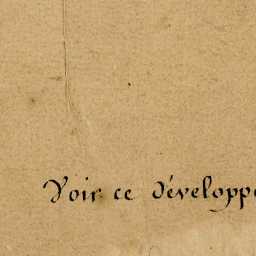 Voir ce développ